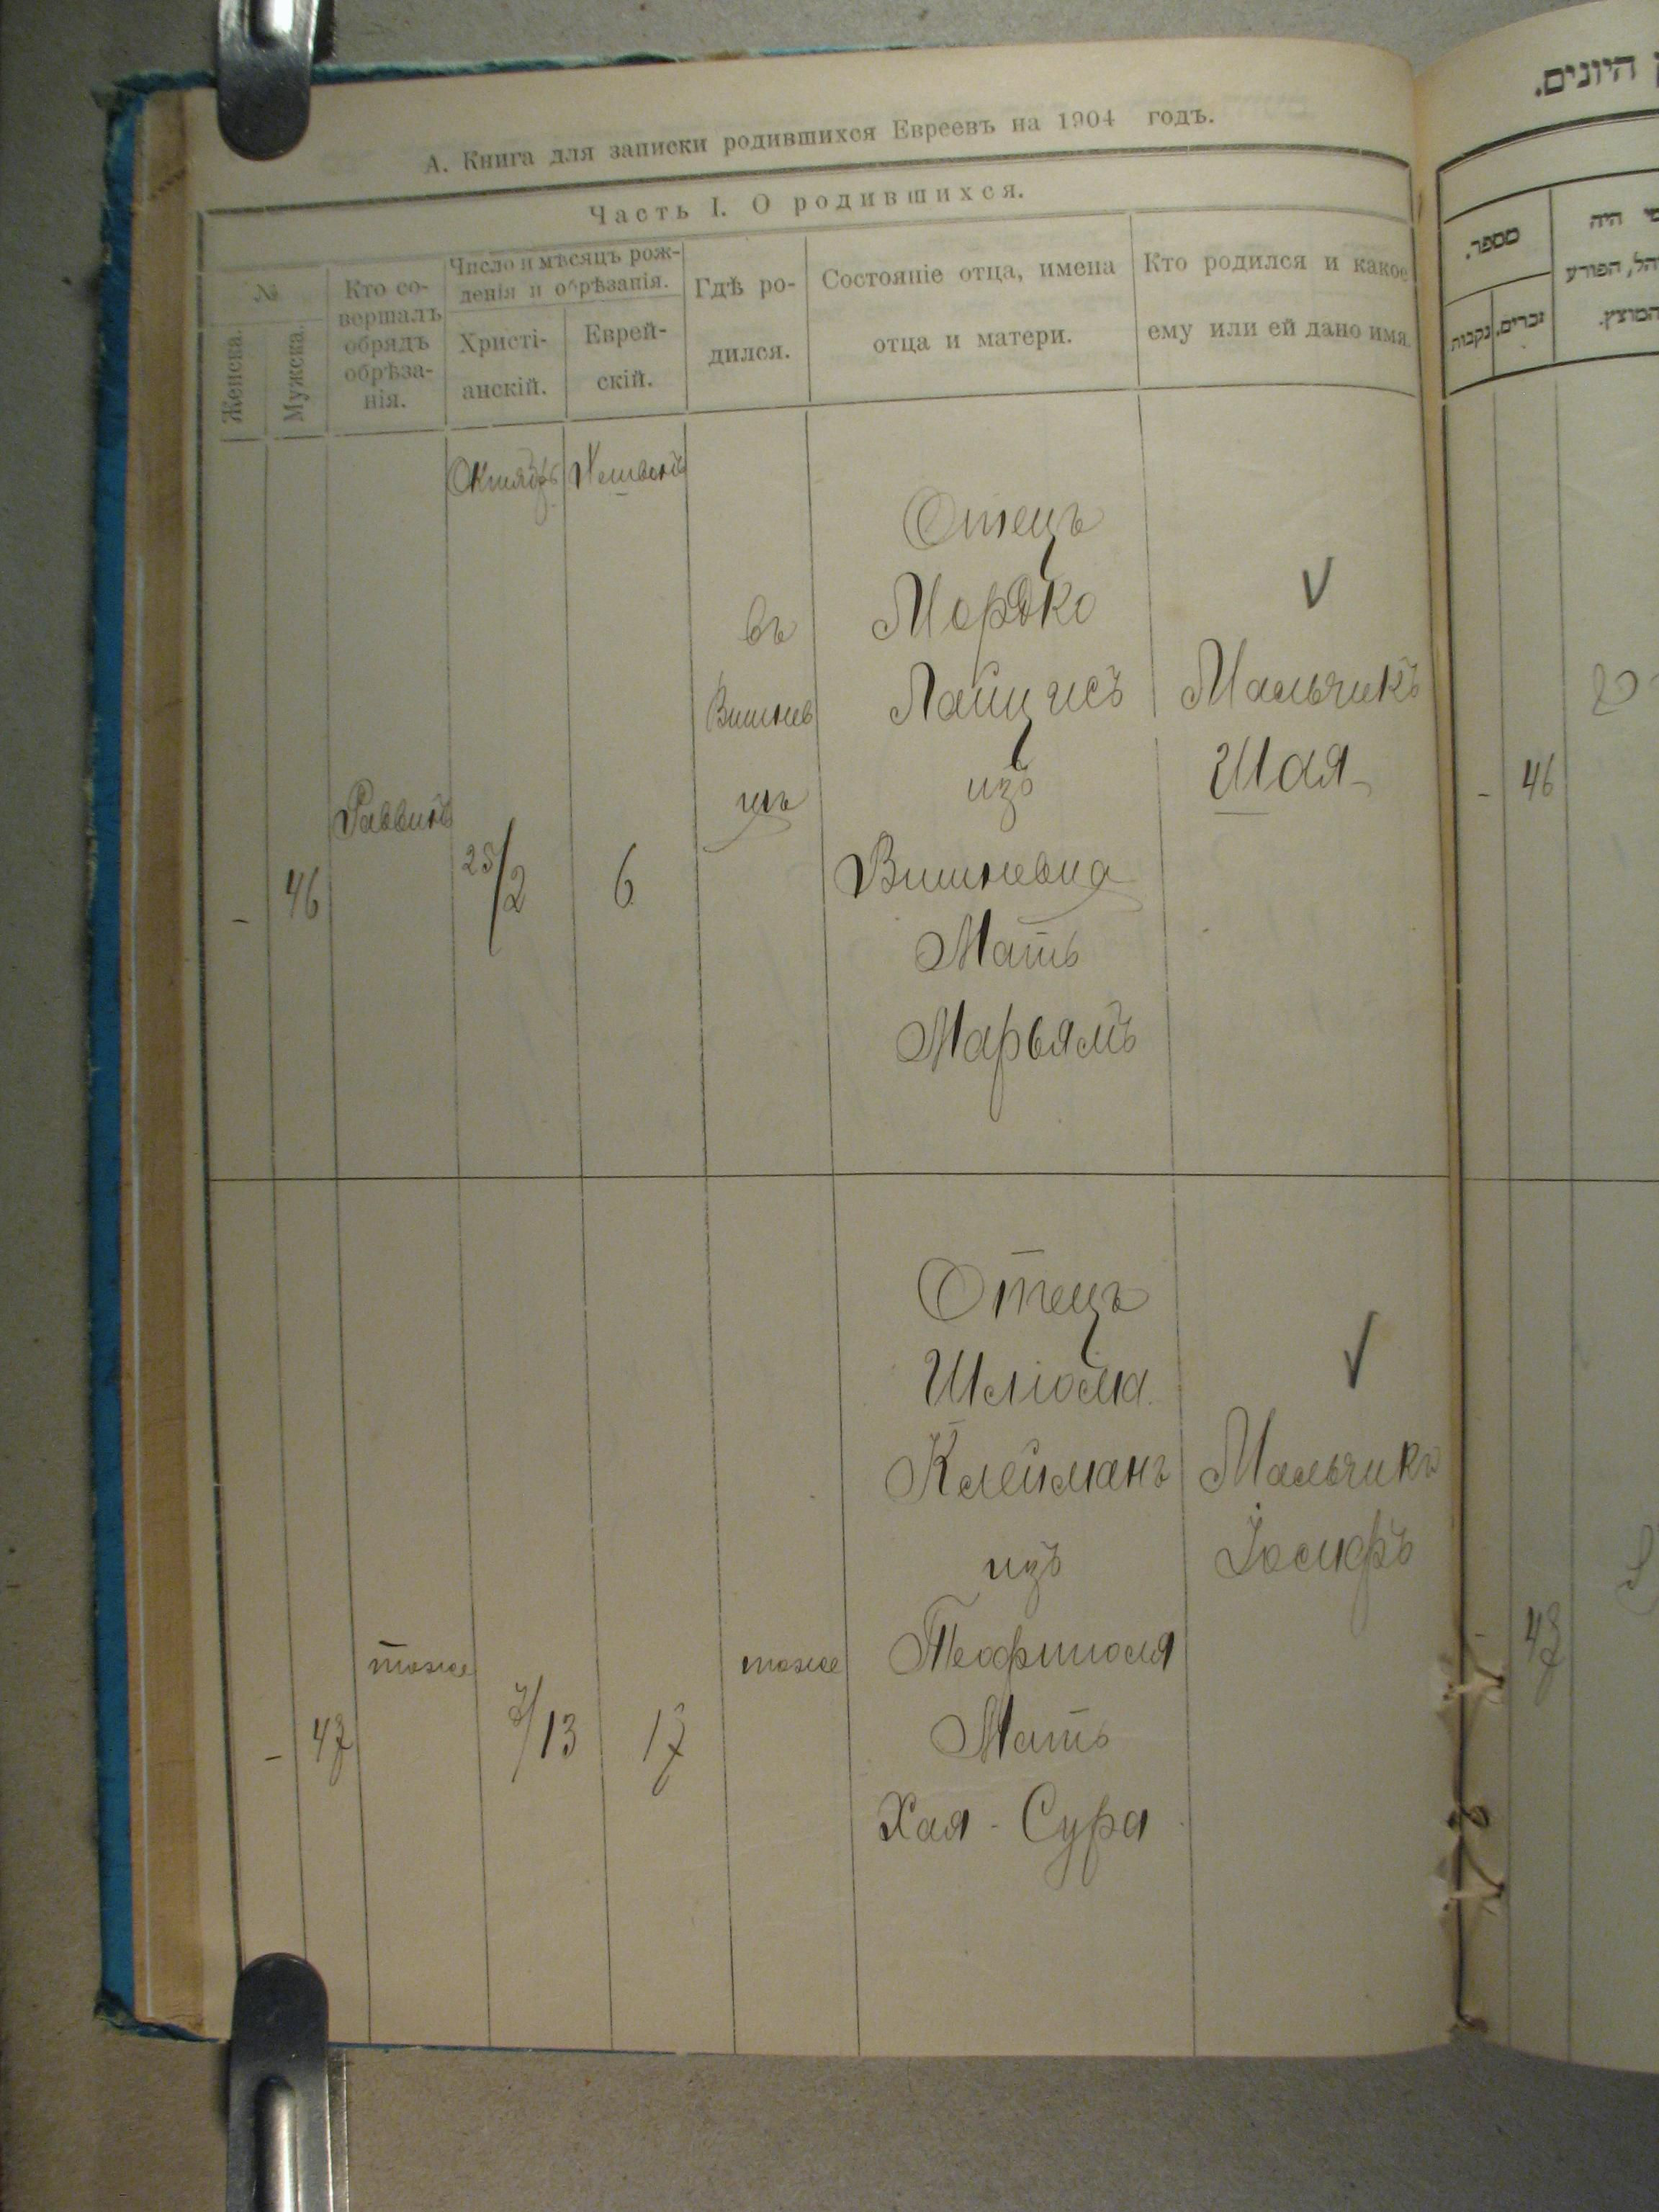 А. Книга для записки родившихся Евреевъ на 1904 годъ.
Часть I. О родившихся.
№
Женска.
Мужска.
Кто со-
вершалъ
обрядъ
обрѣза-
нія.
Число и мѣсяцъ рож-
денія и обрѣзанія.
Христі-
анскій.
Еврей-
скій.
Гдѣ ро-
дился.
Состояніе отца, имена
отца и матери.
Кто родился и какое
ему или ей дано имя.
Октябрь
- 46
Раввинъ
25/2
6
въ
Вишнев
цѣ
Отецъ
Мордко
Лайцисъ
изъ
Вишневца
Мать
Марьямъ
Мальчикъ
Шая
- 47
тоже
7/13
17
тоже
Отецъ
Шлиома
Клейманъ
изъ
Теофиполя
Мать
Хая - Сура
Мальчикъ
Іосифъ
היונים.
מספר.
זכרים,
נקבות.
היה
הפורע
- 46
- 47